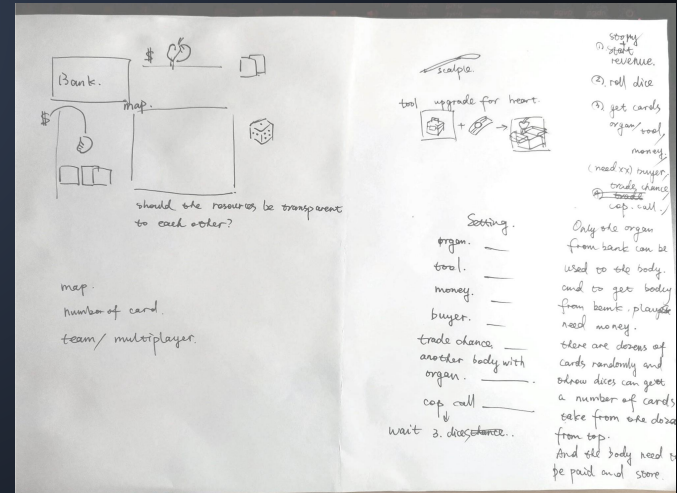 $
Bank.
$
map.
should the resources be transparent
to each other?
map.
number of card.
team/ multiplayer.
scalple
tool upgrade for heart.
Setting.
organ.
tool.
money.
buyer.
trade chance
another body with
organ.
cop call
wait 3. dices chance..
① story
start
revenue.
②. roll dice
get cards
organ/tool/
money/
(need xx) buyer/
trade chance/
trade
cop. call./
Only the organ
from bank can be
used to the body.
and to get body
from bank. player
need money.
there are dozens of
cards randomly and
throw dices can get
a number of cards
take from the
from top.
And the body need
be paid and store